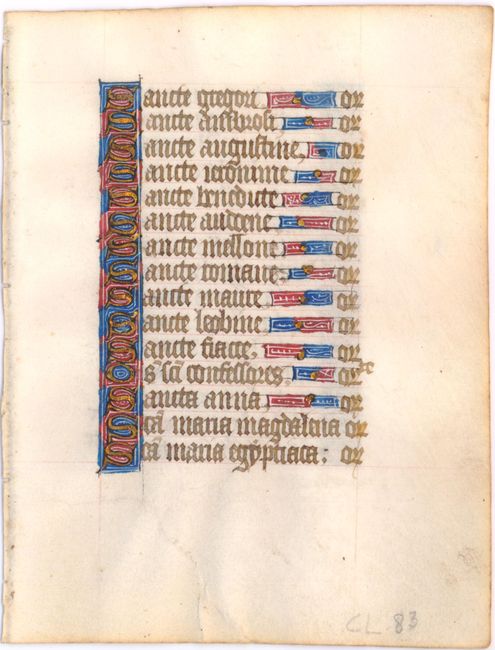 Sancte gregori, or
Sancte ambrosi or
Sancte augustine, or
Sancte ieronime, or
Sancte benedicte or
Sancte audoene or
Sancte mellone, or
Sancte romane, or
Sancte maure, or
Sancte leobine, or
Sancte fiacre, or
Os sci confessores. or
Sancta anna or
Scā maria magdalena or
Scā maria egyptiaca: or
CL 83